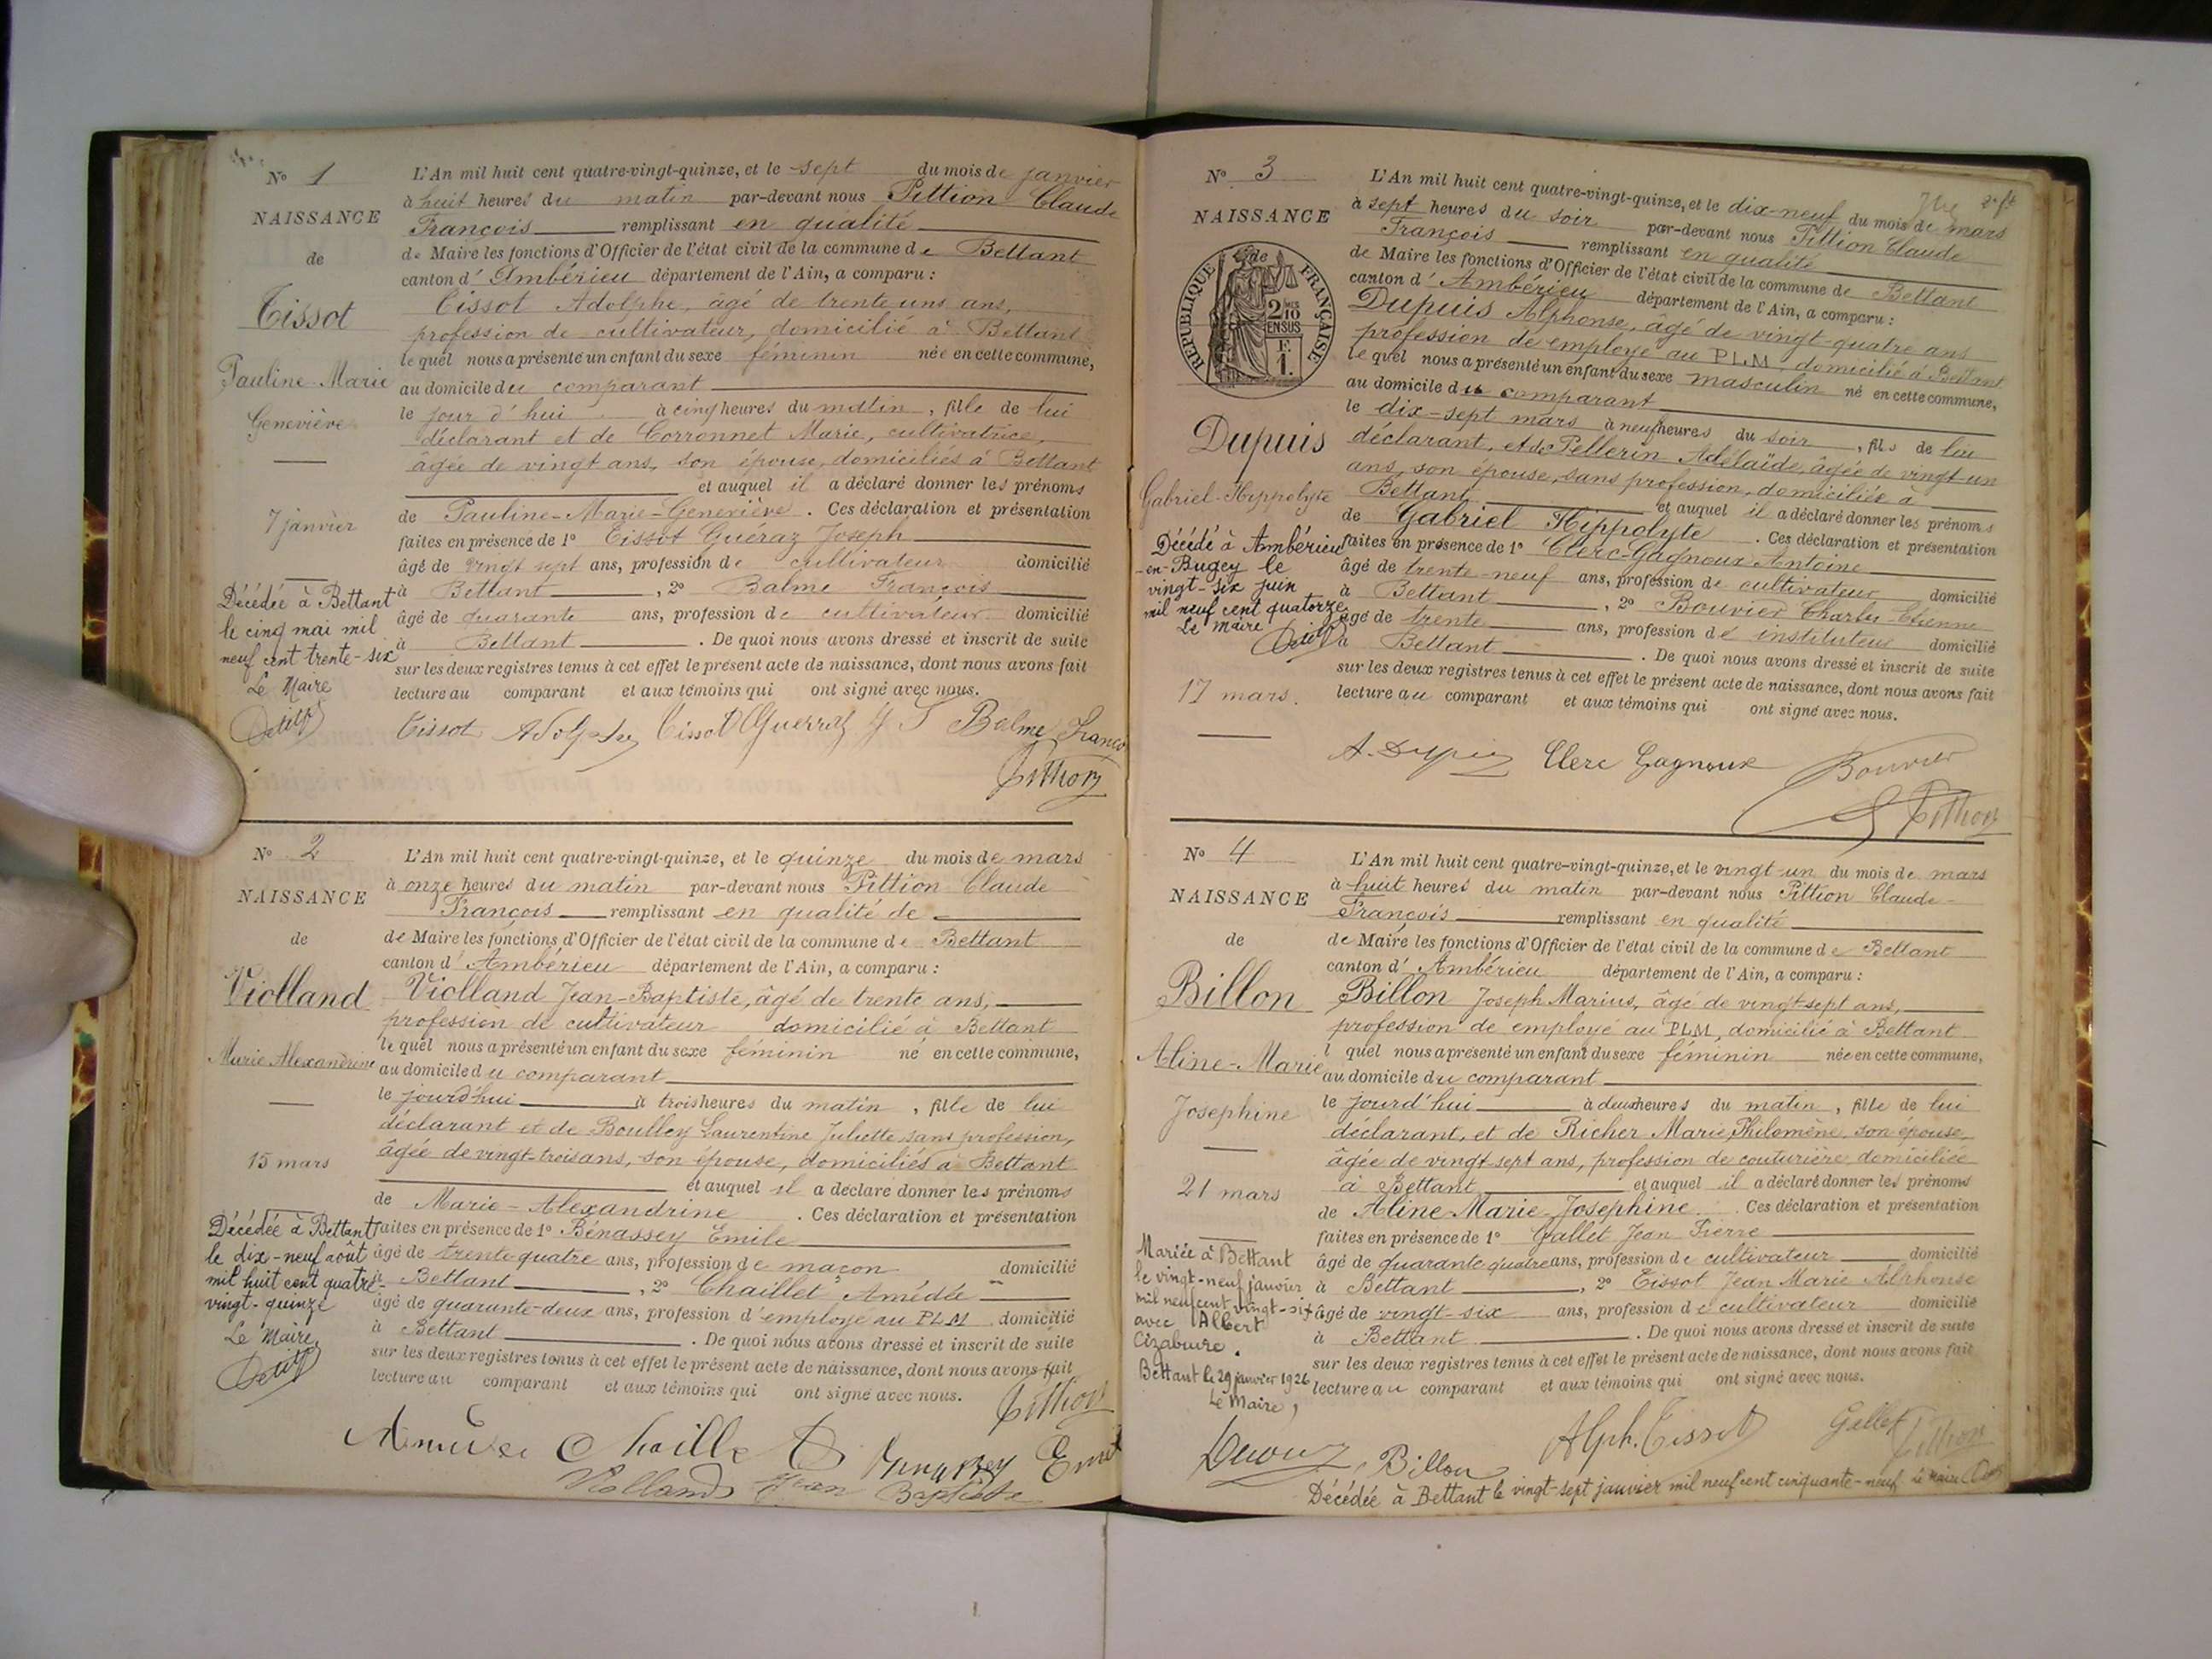 N° 1
NAISSANCE
de
Tissot
Pauline-Marie
Geneviève
7 janvier
Décédée à Bettant
le cinq mai mil
neuf cent trente-six
Le Maire
L'An mil huit cent quatre-vingt-quinze, et le sept du mois de janvier
à huit heures du matin par-devant nous Pittion Claude
François remplissant en qualité
de Maire les fonctions d'Officier de l'état civil de la commune de Bettant
canton d'Ambérieu département de l'Ain, a comparu :
Tissot Adolphe, âgé de trente uns ans,
profession de cultivateur, domicilié à Bettant
lequel nous a présenté un enfant du sexe féminin née en cette commune,
au domicile du comparant
le jour d'hui à cinq heures du matin, fille de lui
déclarant et de Corronnet Marie, cultivatrice,
âgée de vingt ans, son épouse, domiciliés à Bettant
et auquel il a déclaré donner les prénoms
de Pauline-Marie-Geneviève. Ces déclaration et présentation
faites en présence de 1° Tissot Guéraz Joseph
âgé de vingt sept ans, profession de cultivateur domicilié
à Bettant, 2° Balme François
âgé de quarante ans, profession de cultivateur domicilié
à Bettant. De quoi nous avons dressé et inscrit de suite
sur les deux registres tenus à cet effet le présent acte de naissance, dont nous avons fait
lecture au comparant et aux témoins qui ont signé avec nous.
Tissot Adolphe Tissot Guerraz J Balme Franço
Pittion
N° 2
NAISSANCE
de
Violland
Marie Alexandrine
15 mars
Décédée à Bettant
le dix-neuf août
mil huit cent quatre-
vingt-quinze
Le Maire,
L'An mil huit cent quatre-vingt-quinze, et le quinze du mois de mars
à onze heures du matin par-devant nous Pittion Claude
François remplissant en qualité de
de Maire les fonctions d'Officier de l'état civil de la commune de Bettant
canton d'Ambérieu département de l'Ain, a comparu :
Violland Jean-Baptiste, âgé de trente ans,
profession de cultivateur domicilié à Bettant
lequel nous a présenté un enfant du sexe féminin né en cette commune,
au domicile du comparant
le jourd'hui à trois heures du matin, fille de lui
déclarant et de Boulley Laurentine Juliette sans profession,
âgée de vingt-trois ans, son épouse, domiciliés à Bettant
et auquel il a déclaré donner les prénoms
de Marie-Alexandrine. Ces déclaration et présentation
faites en présence de 1° Bénassey Emile
âgé de trente quatre ans, profession de maçon domicilié
à Bettant, 2° Chaillet Amédée
âgé de quarante-deux ans, profession d'employe au PLM domicilié
à Bettant. De quoi nous avons dressé et inscrit de suite
sur les deux registres tenus à cet effet le présent acte de naissance, dont nous avons fait
lecture au comparant et aux témoins qui ont signé avec nous.
Pittion
Violland Jean Baptiste
N° 3
NAISSANCE
de
REPUBLIQUE FRANÇAISE
2 MES
10
EN SUS
F.
1.
Dupuis
Gabriel-Hippolyte
Décédé à Ambérieu
-en-Bugey le
vingt-six juin
mil neuf cent quatorze
Le Maire
17 mars.
L'An mil huit cent quatre-vingt-quinze, et le dix-neuf du mois de mars
à sept heures du soir par-devant nous Pittion Claude
François remplissant en qualité
de Maire les fonctions d'Officier de l'état civil de la commune de Bettant
canton d'Ambérieu département de l'Ain, a comparu :
Dupuis Alphonse, âgé de vingt-quatre ans
profession de employé au PLM, domicilié à Bettant
lequel nous a présenté un enfant du sexe masculin né en cette commune,
au domicile du comparant
le dix-sept mars à neuf heures du soir, fils de lui
déclarant, et de Pellerin Adélaïde, âgée de vingt-un
ans, son épouse, sans profession, domiciliée à
Bettant et auquel il a déclaré donner les prénoms
de Gabriel Hippolyte. Ces déclaration et présentation
faites en présence de 1° Clerc-Gagnoux Antoine
âgé de trente-neuf ans, profession de cultivateur domicilié
à Bettant, 2° Bouvier Charles-Etienne
âgé de trente ans, profession de instituteur domicilié
à Bettant. De quoi nous avons dressé et inscrit de suite
sur les deux registres tenus à cet effet le présent acte de naissance, dont nous avons fait
lecture au comparant et aux témoins qui ont signé avec nous.
A. Dupuis Clerc Gagnoux Bouvier
Pittion
N° 4
NAISSANCE
de
Billon
Aline-Marie
Josephine
21 mars
Mariée à Bettant
le vingt-neuf janvier
mil neuf cent vingt-six
avec Albert
Cizabuire.
Bettant le 29 janvier 1926
Le Maire,
L'An mil huit cent quatre-vingt-quinze, et le vingt-un du mois de mars
à huit heures du matin par-devant nous Pittion Claude-
François remplissant en qualité
de Maire les fonctions d'Officier de l'état civil de la commune de Bettant
canton d'Ambérieu département de l'Ain, a comparu :
Billon Joseph Marius, âgé de vingt-sept ans,
profession de employé au PLM, domicilié à Bettant
l quel nous a présenté un enfant du sexe féminin née en cette commune,
au domicile du comparant
le jourd'hui à deux heures du matin, fille de lui
déclarant, et de Richer Marie Philomène, son épouse,
âgée de vingt-sept ans, profession de couturière, domiciliée
à Bettant et auquel il a déclaré donner les prénoms
de Aline Marie Josephine. Ces déclaration et présentation
faites en présence de 1° Gallet Jean Pierre
âgé de quarante quatre ans, profession de cultivateur domicilié
à Bettant, 2° Tissot Jean Marie Alphonse
âgé de vingt-six ans, profession de cultivateur domicilié
à Bettant. De quoi nous avons dressé et inscrit de suite
sur les deux registres tenus à cet effet le présent acte de naissance, dont nous avons fait
lecture au comparant et aux témoins qui ont signé avec nous.
Billon Alph. Tissot Gallet Pittion
Décédée à Bettant le vingt-sept janvier mil neuf cent cinquante-neuf Le Maire